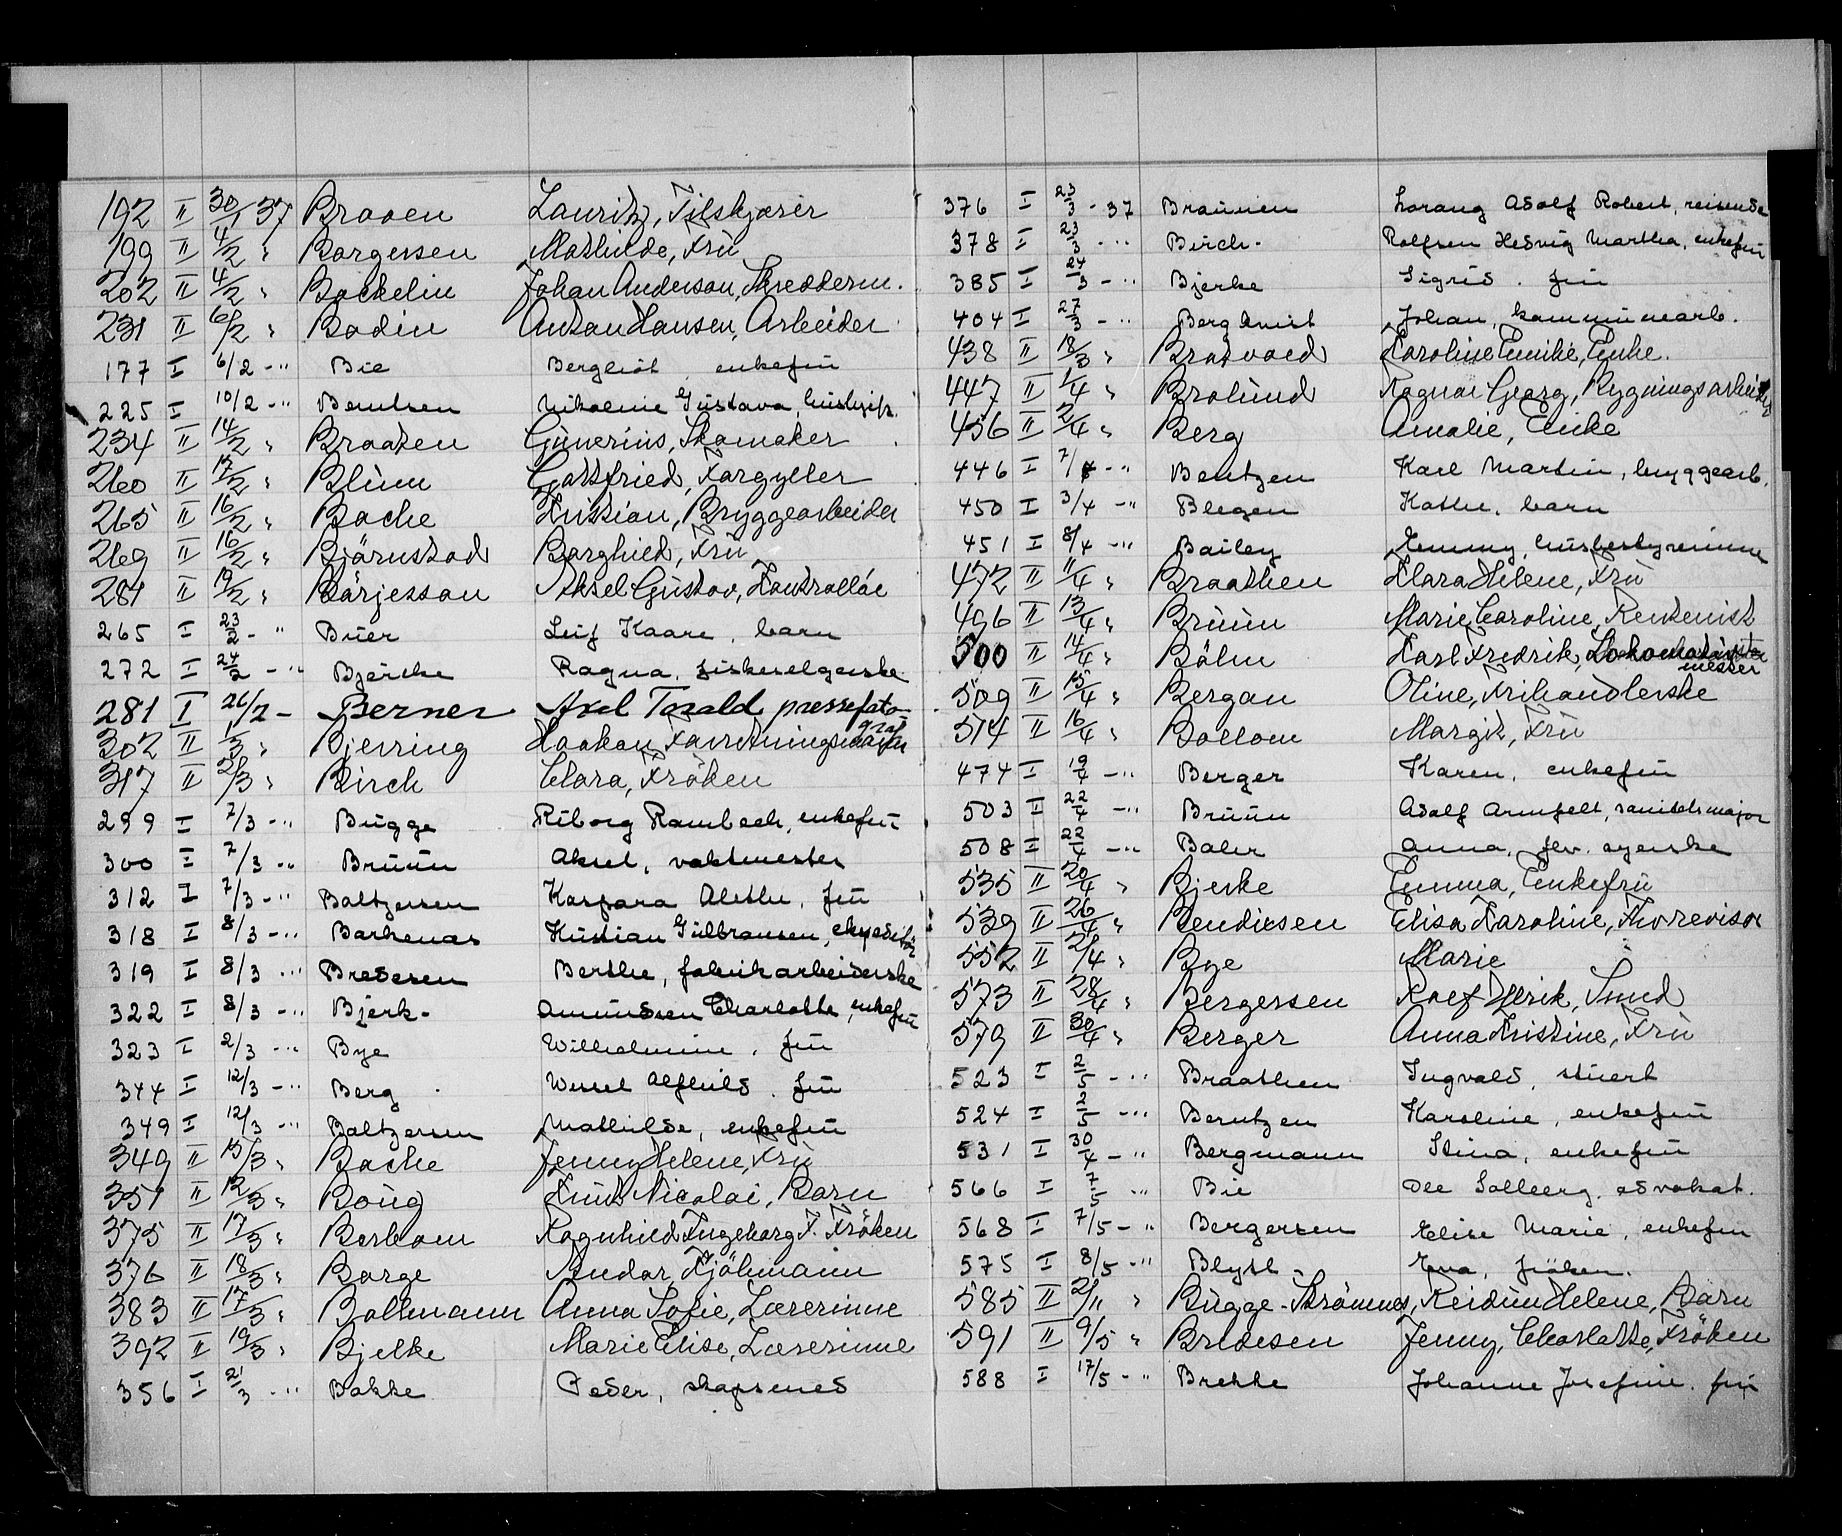 192 II 30/1 37 Braaen Lauritz, Tilskjærer
199 II 4/2 " Borgersen Mathilde, Fru
202 II 4/2 " Bockelin Johan Anderson, Skredderm.
231 II 6/2 " Bodin Anton Hansen, Arbeider
177 I 6/2 - " Bie Bergliot, enkefru
225 I 10/2 - " Berntsen Nikoline Gustava,
234 II 14/2 " Braaten Gunerius, Skomaker
260 II 17/2 " Blum Gottfried, Forgyller
265 II 16/2 " Bache Kristian, Bryggearbeider
269 II 16/2 " Bjärnstad Borghild, Fru
281 II 19/2 " Börjesson Aksel Gustav, Kontrollör
265 I 23/2 - " Buer Leif Kaare, barn
272 I 24/2 - " Bjercke Ragna, fiskeselgerske
281 I 26/2 - Berner Axel Torald pressefotograf
302 II 1/3 " Bjerring Haakon, Forretningsmann
317 II 2/3 " Birch Clara, Fröken
299 I 7/3 - " Bugge Riborg Rambech, enkefru
300 I 7/3 - " Bruun Aksel, vaktmester
312 I 7/3 - " Baltzersen Kaspara Alethe, fru
318 I 8/3 - " Barkenæs Kristian Gulbransen, ekspeditör
319 I 8/3 - " Bredesen Berthe, fabrikarbeiderske
322 I 8/3 - " Bjerk- Amundsen Charlotte, enkefru
323 I 2/3 - " Bye Wilhelmine, fru
344 I 12/3 - " Berg Wessel Alfhild, fru
349 I 12/3 - " Baltzersen Mathilde, enkefru
349 II 15/3 " Bache Jenny Helene, Fru
351 II 12/3 " Boug Knut Nicolai, Barn
375 II 17/3 " Borbom Ragnhild Ingeborg F. Fröken
376 II 18/3 " Borge Sjömann
383 II 17/3 " Bollmann Anna Sofie, Lærerinne
392 II 19/3 " Bjelke Marie Elise, Lærerinne
356 I 21/3 - " Bakke Peder, skapsmed
376 I 23/3 - 37 Braunen Lorang Adolf Robert, reisende
378 I 23/3 - " Birch- Rolfsen Hedvig Martha, enkefru
385 I 24/3 - " Bjerke Sigrid, fru
404 I 27/3 - " Bergkvist Johan, kommunearb.
438 II 18/3 " Bratvold Karoline Emilie, Enke.
447 II 1/4 " Brolund Ragnar Georg, Bygningsarbeider
456 II 2/4 " Berg Amalie, Enke
446 I 7/4 - " Bentzen Karl Martin, bryggearb.
450 I 3/4 - " Blegen Kathe, barn
451 I 8/4 - " Bailey Jenny, husbestyrerinne
472 II 11/4 " Braathen Klara Helene, Fru
496 II 13/4 " Bruun Marie Caroline, Rentenist
500 II 14/4 " Böhn Karl Fredrik, Lokomotivmester
509 II 15/4 " Bergan Oline, Frihandlerske
514 II 16/4 " Bollom Margit, Fru
474 I 19/4 - " Berger Karen, enkefru
503 I 22/4 - " Bruun Adolf Armfelt, sanitetsmajor
508 I 22/4 - " Baler Anna, fhv. syerske
535 II 20/4 " Bjerke Emma, Enkefru
539 II 26/4 " Bendiksen Elisa Karoline, Fhv revisor
552 II 21/4 " Bye Marie
573 II 28/4 " Bergersen Rolf Henrik, Smed
579 II 30/4 " Berger Anna Kristine, Fru
523 I 2/5 - " Braathen Ingvald, stuert
524 I 2/5 - " Berntzen Karoline, enkefru
531 I 30/4 - " Bergmann Stina, enkefru
566 I 7/5 " Bie Ole Solberg, advokat.
568 I 7/5 - " Bergersen Elise Marie, enkefru
575 I 8/5 - " Blytt Eva, fröken.
585 II 2/11 " Bugge-Strömnes, Reidun Helene, Barn
591 II 9/5 " Bredesen Jenny, Charlotte, Fröken
588 I 17/5 - " Brekke Johanne Josefine, fru